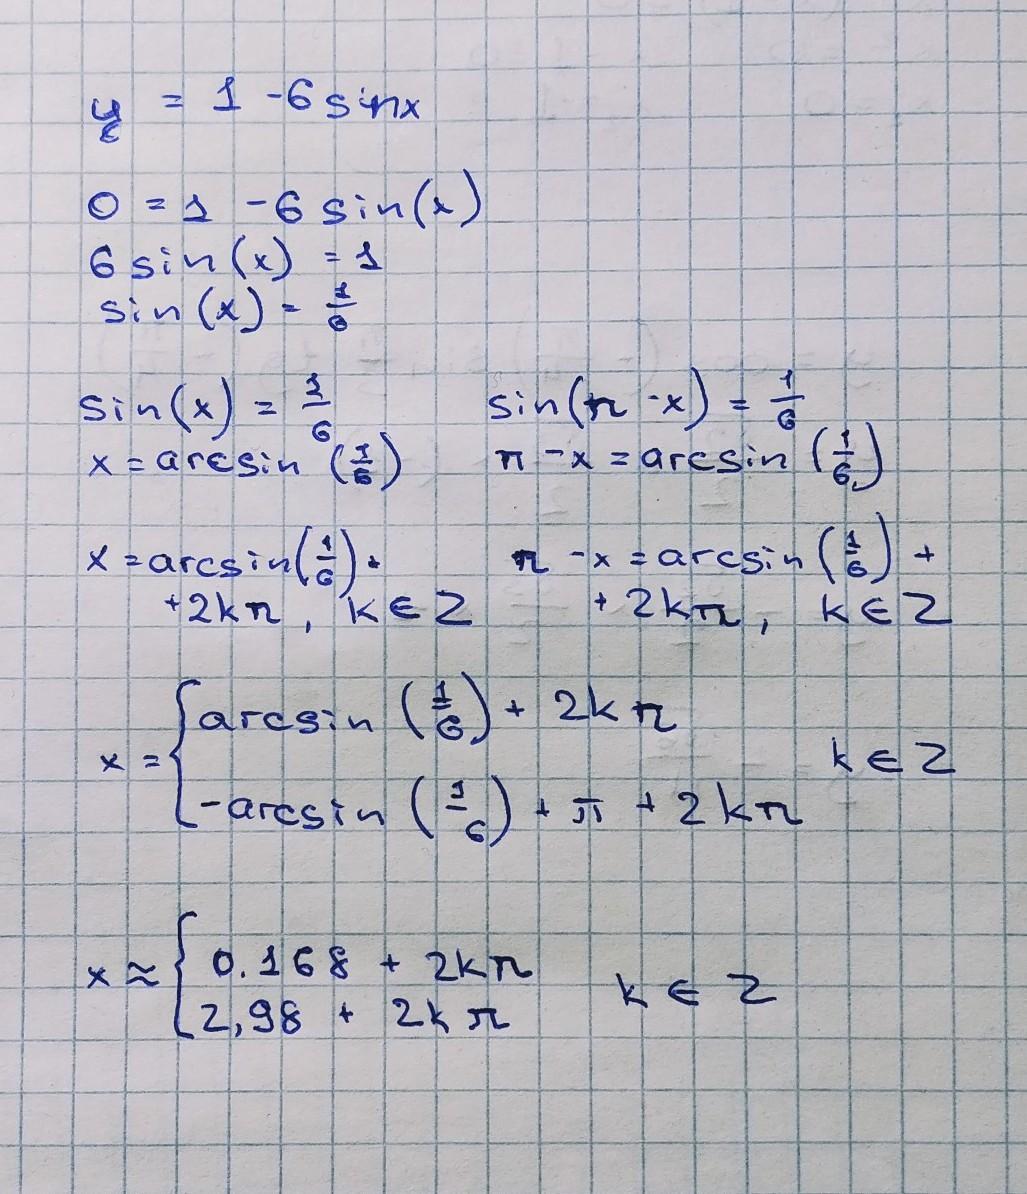 y = 1 - 6 sinx
0 = 1 - 6 sin(x)
6 sin(x) = 1
sin(x) = 1/6
sin(x) = 1/6
x = arcsin (1/6)
x = arcsin(1/6) +
+ 2kπ, k ∈ Z
sin(π - x) = 1/6
π - x = arcsin (1/6)
π - x = arcsin (1/6) +
+ 2kπ, k ∈ Z
x = { arcsin (1/6) + 2kπ
- arcsin (1/6) + π + 2kπ
k ∈ Z
x ≈ { 0.168 + 2kπ
2,98 + 2kπ
k ∈ Z